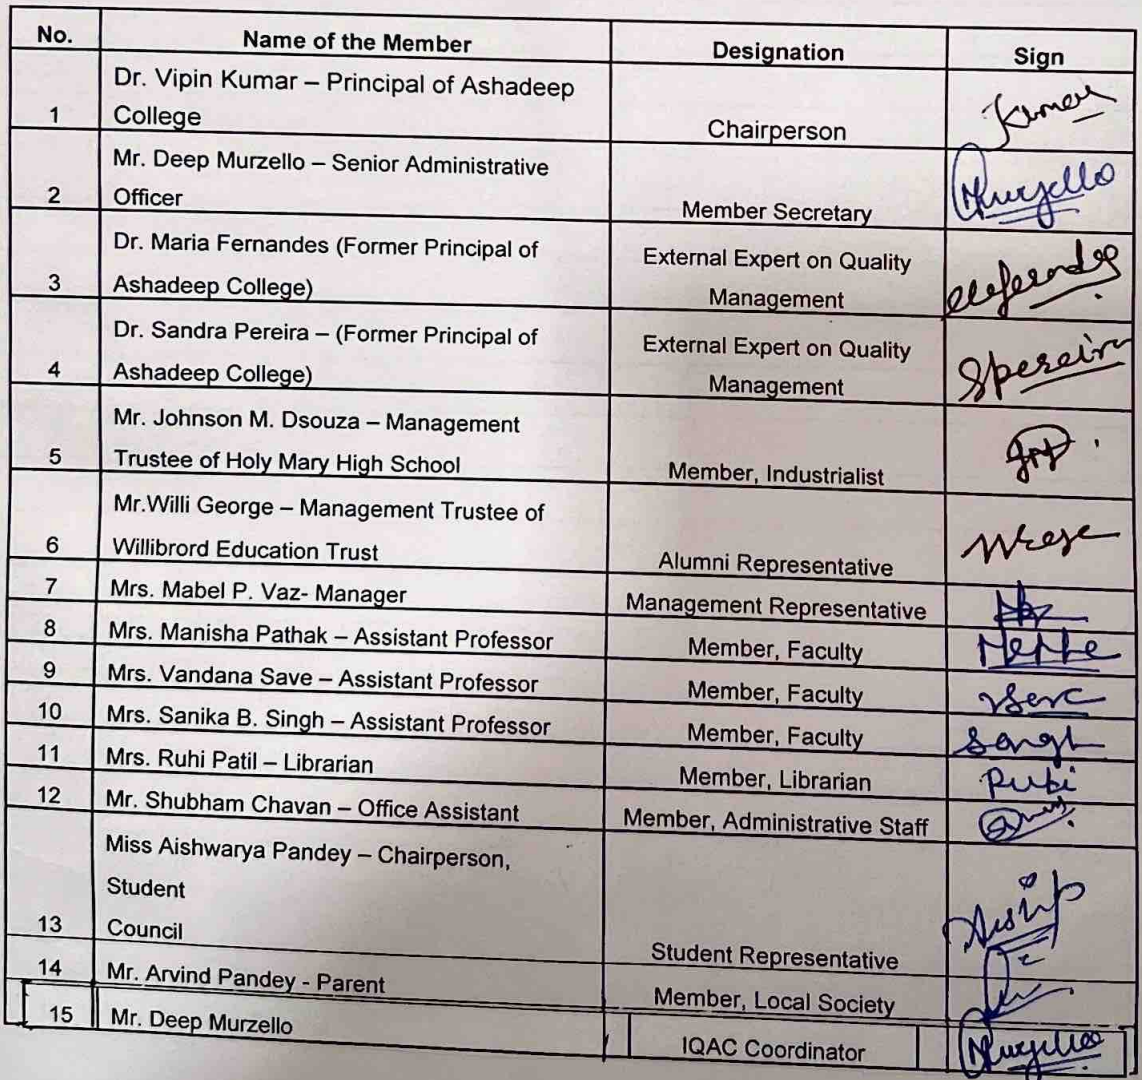 No. Name of the Member Designation Sign
Dr. Vipin Kumar – Principal of Ashadeep
1 College Chairperson Kumar
Mr. Deep Murzello – Senior Administrative
2 Officer Member Secretary Murzello
Dr. Maria Fernandes (Former Principal of External Expert on Quality
3 Ashadeep College) Management
Dr. Sandra Pereira – (Former Principal of External Expert on Quality
4 Ashadeep College) Management SPereira
Mr. Johnson M. Dsouza – Management
5 Trustee of Holy Mary High School Member, Industrialist
Mr.Willi George – Management Trustee of
6 Willibrord Education Trust Alumni Representative
7 Mrs. Mabel P. Vaz- Manager Management Representative
8 Mrs. Manisha Pathak – Assistant Professor Member, Faculty
9 Mrs. Vandana Save – Assistant Professor Member, Faculty
10 Mrs. Sanika B. Singh – Assistant Professor Member, Faculty
11 Mrs. Ruhi Patil – Librarian Member, Librarian
12 Mr. Shubham Chavan – Office Assistant Member, Administrative Staff
Miss Aishwarya Pandey – Chairperson,
Student
13 Council Student Representative
14 Mr. Arvind Pandey - Parent Member, Local Society
15 Mr. Deep Murzello IQAC Coordinator Murzello